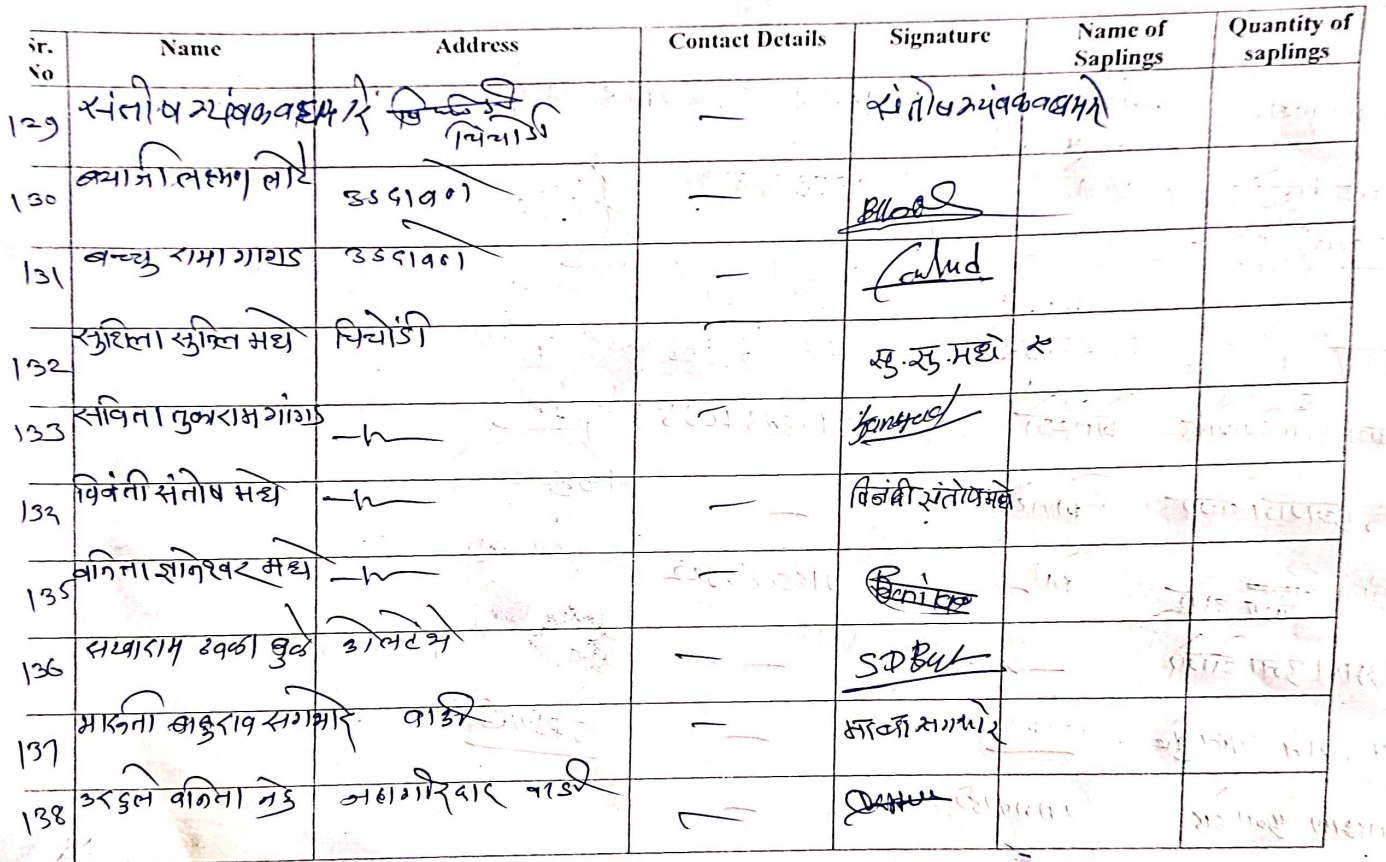 Sr. No Name Address Contact Details Signature Name of Saplings Quantity of saplings
129 संतोष त्र्यंबक वाघमारे चिचोंडी — संतोष त्र्यंबक वाघमारे
130 बयाजी लक्ष्मण लोटे उडदावणे —
131 बच्चु रामा गांगड उडदावणे —
132 सुशिला सुनिल मधे चिचोंडी सु.सु.मधे
133 सविता तुकाराम गांगड —॥— —
134 विनंती संतोष मधे —॥— — विनंती संतोष मधे
135 वनिता ज्ञानेश्वर मधे —॥— —
136 सखाराम ढवळा बुळे — SDBul
137 मारुती बाबुराव सगभोर वाडी —
138 वनिता वाडी —